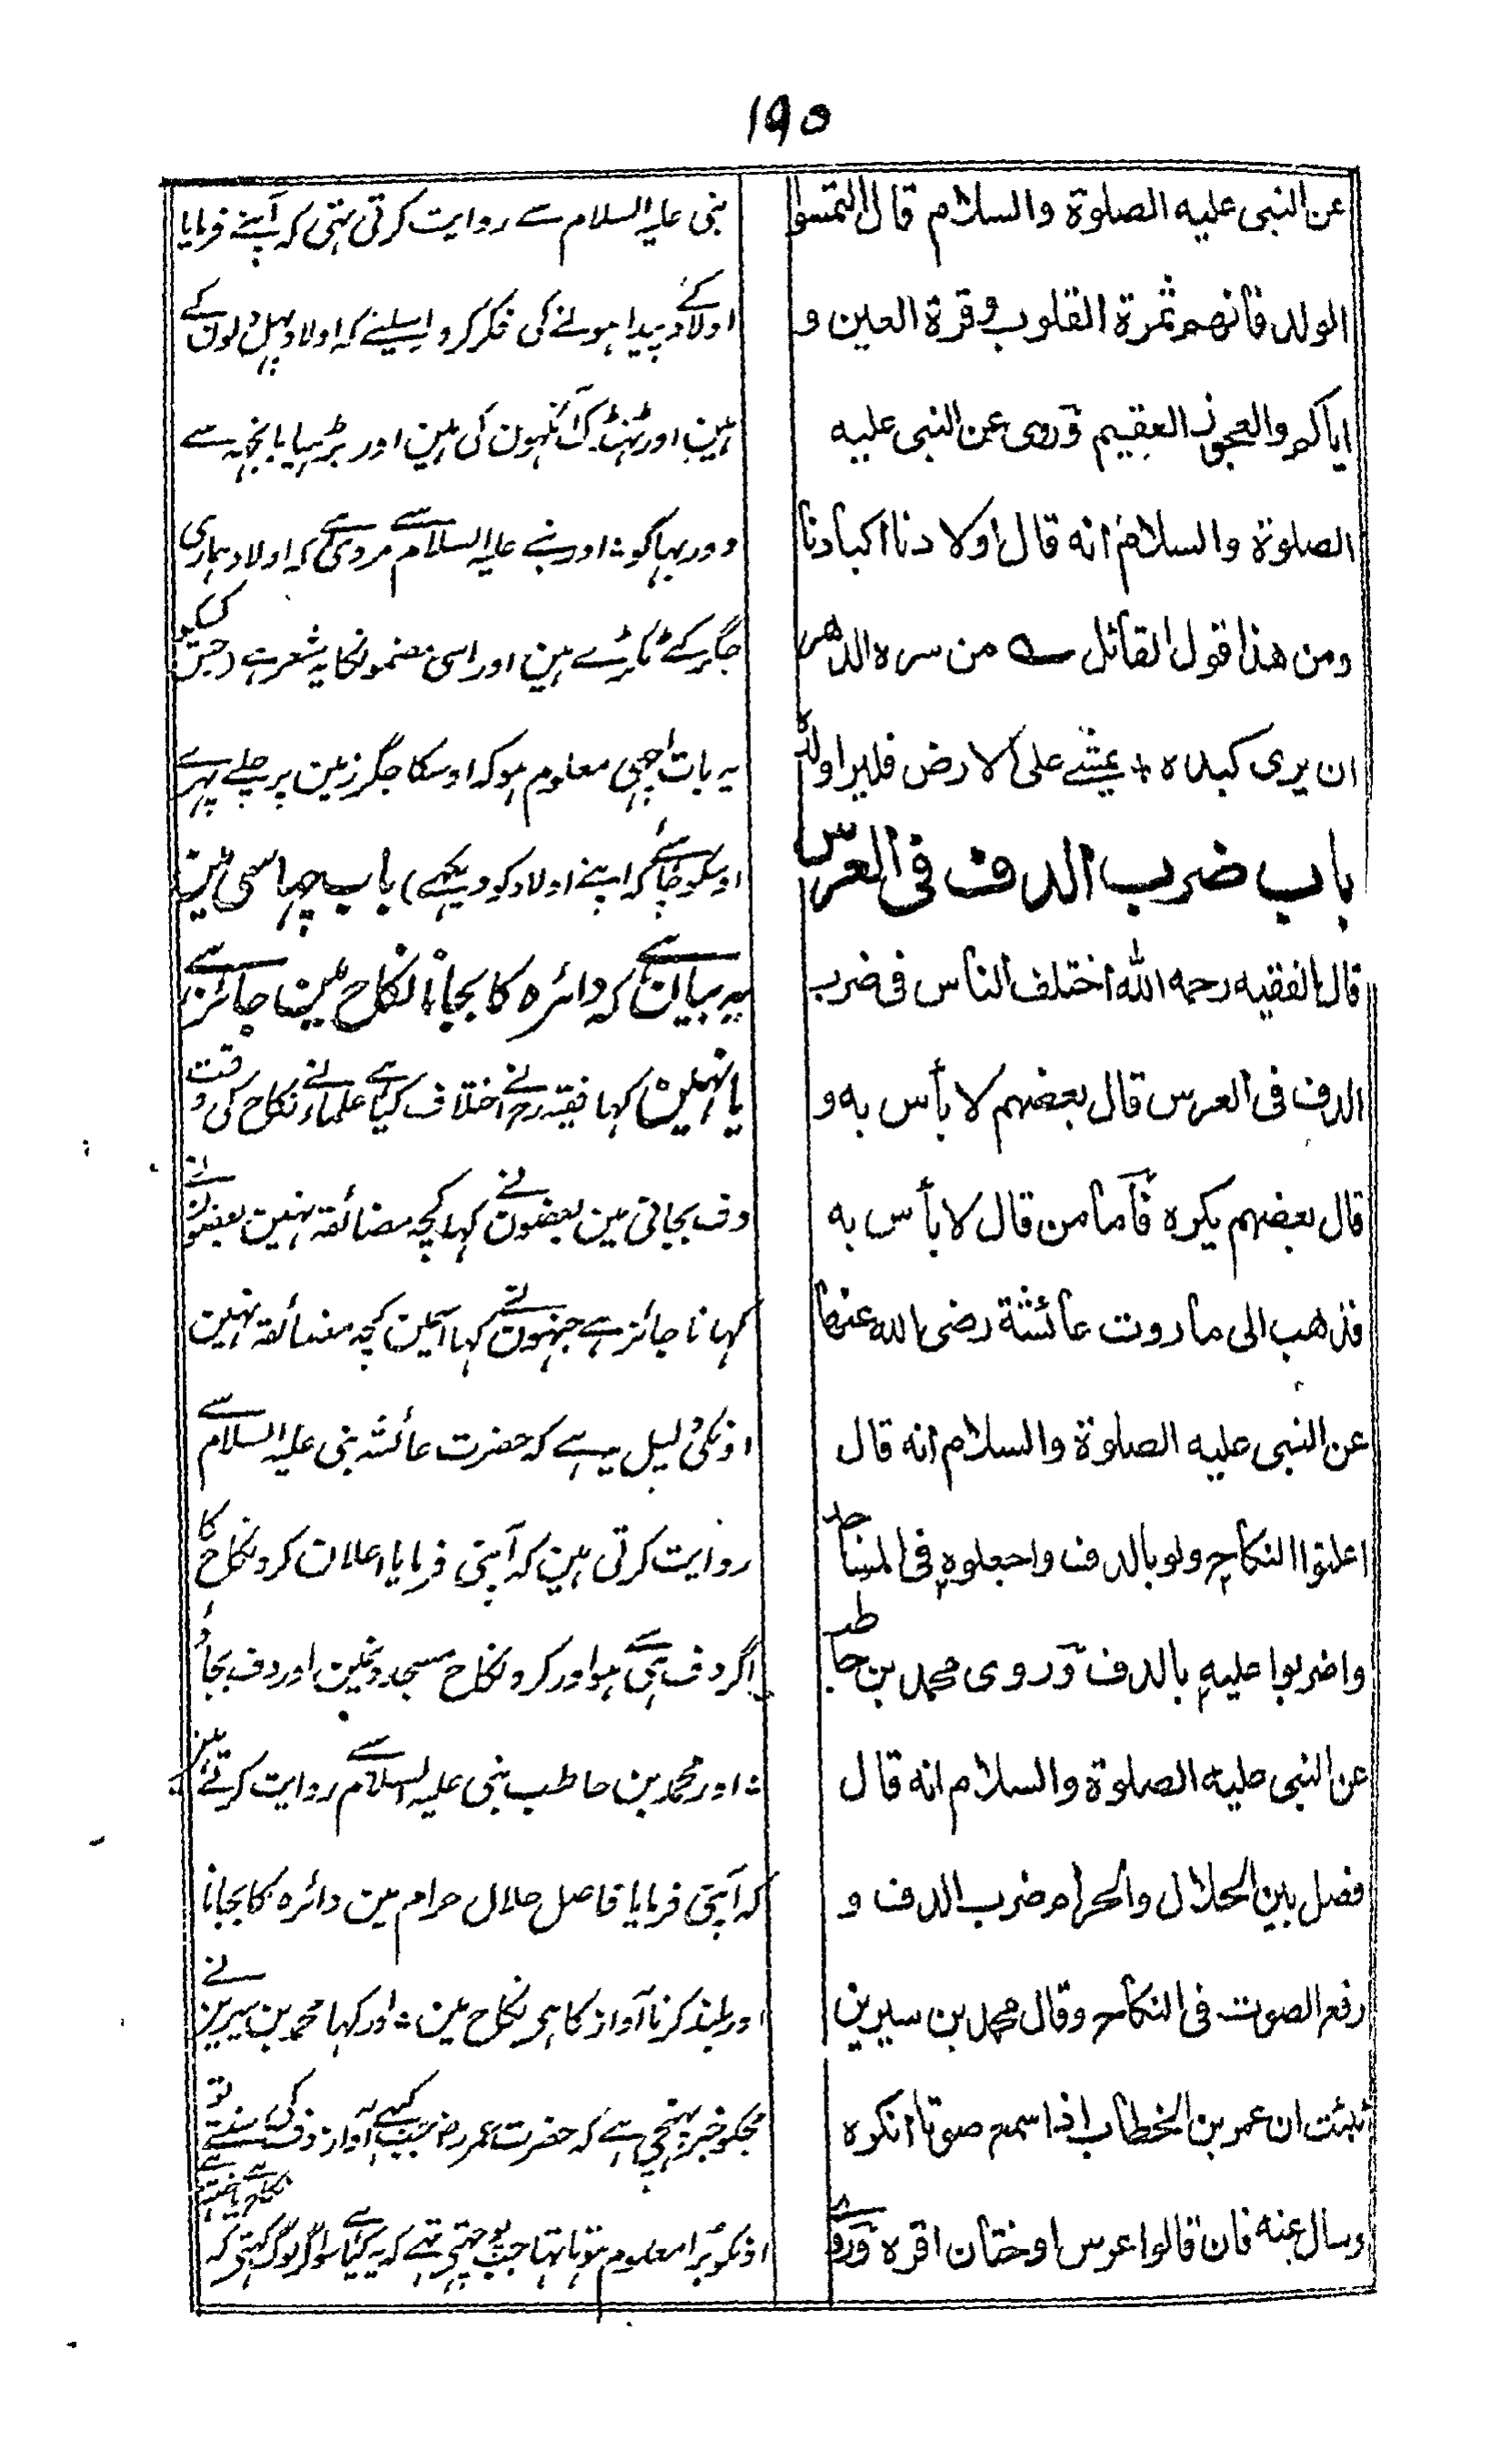 ۱۹۵
عن النبی علیه الصلوة والسلام قال التمسوا
الولد فانهم ثمرة القلوب وقرة العین و
ایاکم والعجوز العقیم وروی عن النبی علیه
الصلوة والسلام انه قال اولادنا اکبادنا
ومن هذا قول القائل من سره الدهر
ان یری کبده + یمشے علی الارض فلیر اولاده
باب ضرب الدف فی العرس
قال الفقیه رحمه الله اختلف الناس فی ضرب
الدف فی العرس قال بعضهم لا بأس به و
قال بعضهم یکره فأما من قال لا بأس به
فذهب الی ما روت عائشة رضی الله عنها
عن النبی علیه الصلوة والسلام انه قال
اعلنوا النکاح ولو بالدف واجعلوه فی المساجد
واضربوا علیه بالدف وروی محمد بن حاطب
عن النبی علیه الصلوة والسلام انه قال
فصل بین الحلال والحرام ضرب الدف و
رفع الصوت فی النکاح وقال محمد بن سیرین
نبئت ان عمر بن الخطاب اذا سمع صوتا انکره
وسال عنه فان قالوا عرس او ختان اقره وروی
نبی علیہ السلام سے روایت کرتی ہتی کہ آپنے فرمایا
اولاد کے پیدا ہونے کی فکر کرو اسلیئے کہ اولاد پہل دلون کے
ہین اور ٹہنڈک آنکہون کی ہین اور بڑہیا بانجہہ سے
دور بہاگو : اور نبے علیہ السلام سے مروی ہے کہ اولاد ہماری
جگر کے ٹکڑے ہین اور اسی مضمونکا یہ شعر ہے (جس کسیکو
یہ بات اچہی معلوم ہو کہ اوسکا جگر زمین پر چلے پہرے
اوسکو چاہئے کہ اپنے اولاد کو دیکہے) باب چہاسی مین
یہ بیان ہے کہ دائرہ کا بجانا نکاح مین جائز ہے
یا نہین کہا فقیہ رح نے اختلاف کیا ہے علماء نے نکاح کی وقت
دف بجانی مین بعضون نے کہا کچہ مضائقہ نہین بعضون نے
کہا ناجائز ہے جنہون نے کہا اسمین کچہ مضائقہ نہین
اونکی دلیل یہ ہے کہ حضرت عائشہ نبی علیہ السلام سے
روایت کرتی ہین کہ آپنی فرمایا اعلان کرو نکاح کا
اگر دف ہی ہو اور کرو نکاح مسجدونمین اور دف بجاؤ
: اور محمد بن حاطب نبی علیہ السلام سے روایت کرتے ہین
کہ آپنی فرمایا فاصل حلال حرام مین دائرہ کا بجانا
اور بلند کرنا آواز کا ہی نکاح مین : اور کہا محمد بن سیرین نے
مجکو خبر پہنچی ہے کہ حضرت عمر رض جب کہے آواز دف کی سنتے تو
اونکو برا معلوم ہوتا تہا جب پوچہتی تہے کہ یہ کیا ہے سو اگر لوگ کہتی کہ